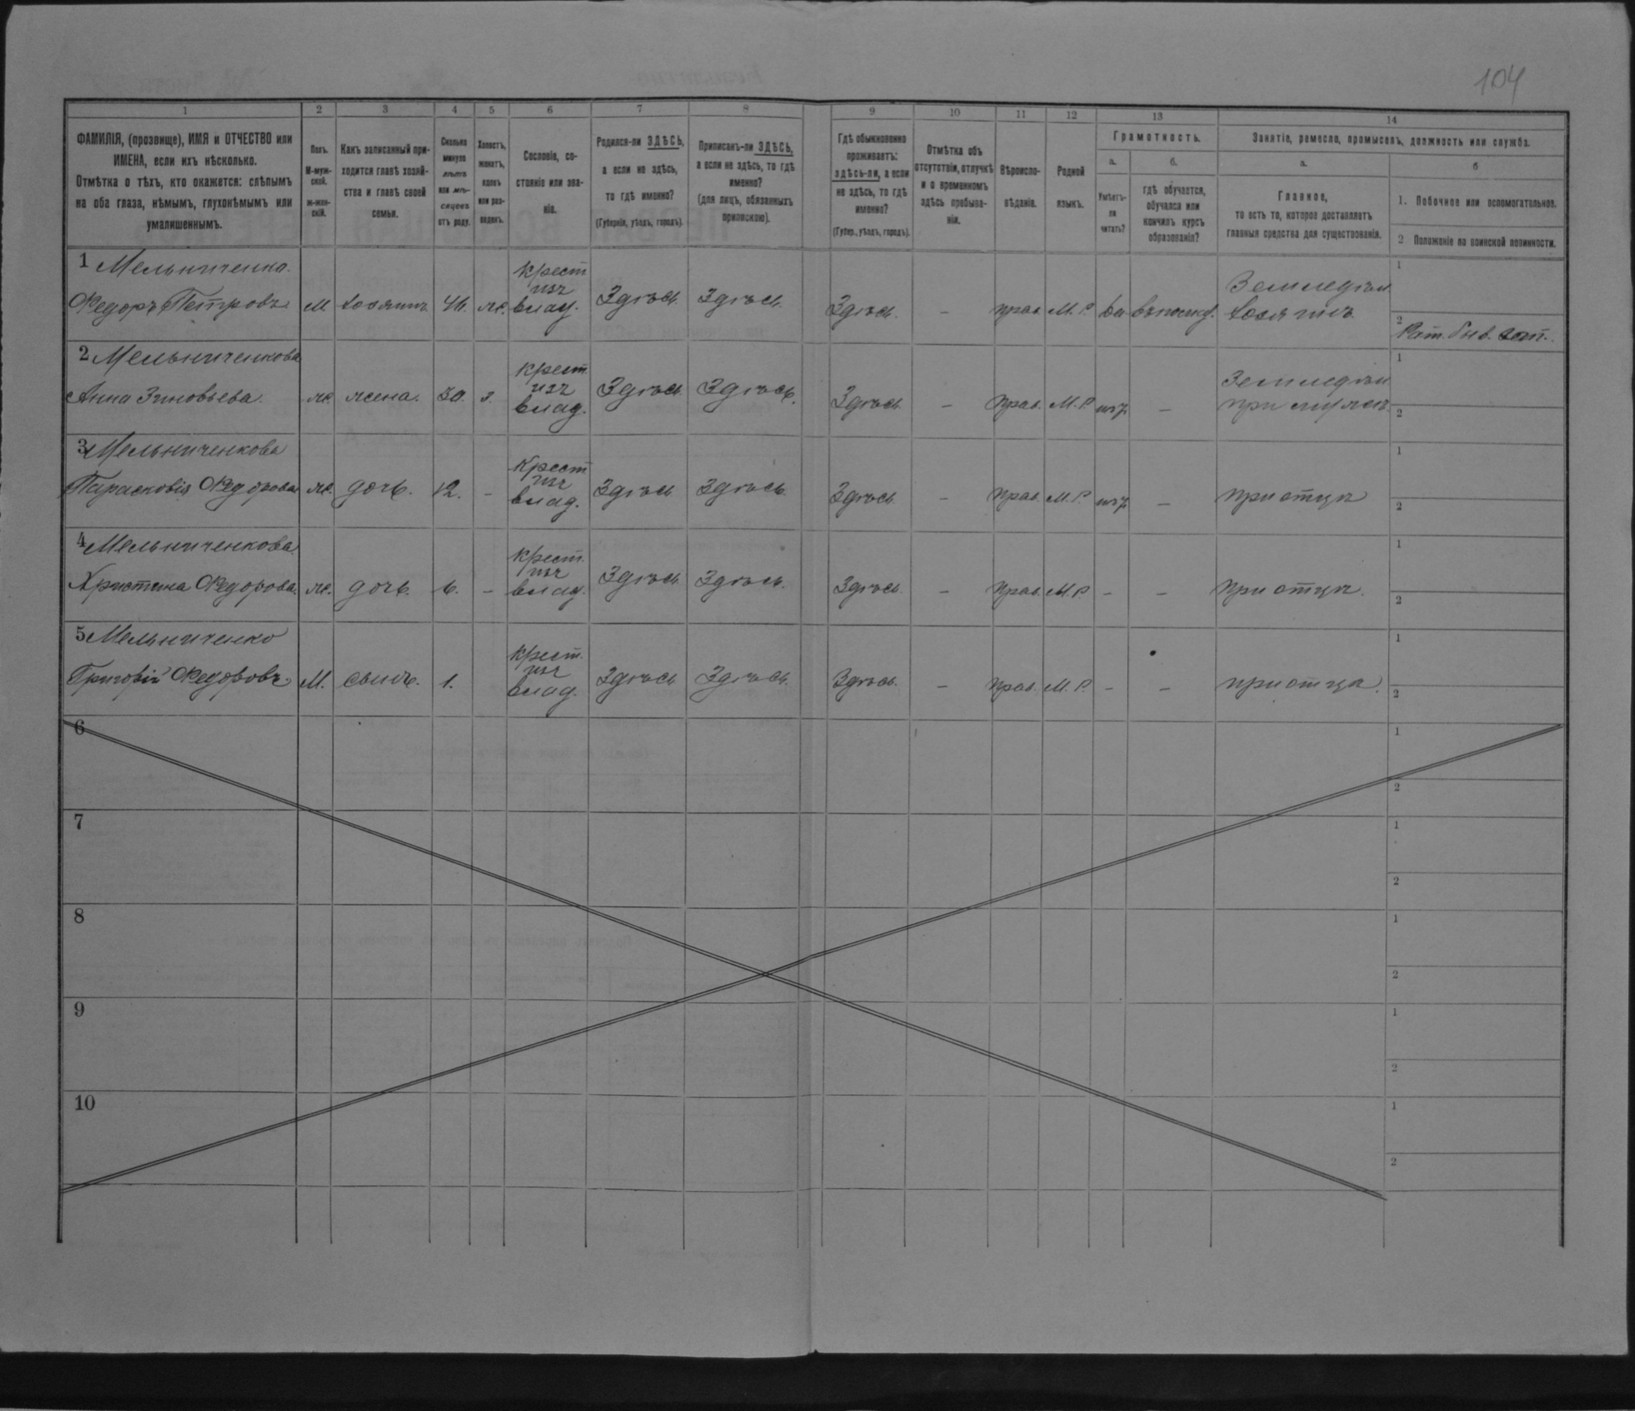 104
1 2 3 4 5 6 7 8 9 10 11 12 13 14
ФАМИЛІЯ, (прозвище), ИМЯ и ОТЧЕСТВО или
ИМЕНА, если ихъ нѣсколько.
Отмѣтка о тѣхъ, кто окажется: слѣпымъ
на оба глаза, нѣмымъ, глухонѣмымъ или
умалишеннымъ.
Полъ.
М-муж-
ской.
ж-жен-
скій.
Какъ записанный при-
ходится главѣ хозяй-
ства и главѣ своей
семьи.
Сколько
минуло
лѣтъ
или мѣ-
сяцевъ
отъ роду.
Холостъ,
женатъ,
вдовъ
или раз-
веденъ.
Сословіе, со-
стояніе или зва-
ніе.
Родился-ли ЗДѢСЬ,
а если не здѣсь,
то гдѣ именно?
(Губернія, уѣздъ, городъ).
Приписанъ-ли ЗДѢСЬ,
а если не здѣсь, то гдѣ
именно?
(для лицъ, обязанныхъ
припискою).
Гдѣ обыкновенно
проживаетъ:
здѣсь-ли, а если
не здѣсь, то гдѣ
именно?
(Губер., уѣздъ, городъ).
Отмѣтка объ
отсутствіи, отлучкѣ
и о временномъ
здѣсь пребыва-
ніи.
Вѣроиспо-
вѣданіе.
Родной
языкъ.
Грамотность.
а.
Умѣетъ-
ли
читать?
б.
гдѣ обучается,
обучался или
кончилъ курсъ
образованія?
Занятіе, ремесло, промыселъ, должность или служба.
а.
Главное,
то есть то, которое доставляетъ
главныя средства для существованія.
б
1. Побочное или вспомогательное.
2 Положеніе по воинской повинности.
1 Мельниченко
Федоръ Петровъ М хозяинъ 46. ж. Крест изъ влад. Здѣсь Здѣсь Здѣсь – прав. М. Р. Земледѣл хозяинъ
1
2
2 Мельниченкова
Анна Зиновьева ж. жена. з. Крест. изъ влад. Здѣсь Здѣсь. Здѣсь – прав. М. Р. нѣт – Земледѣл при мужѣ
1
2
3 Мельниченкова
Парасковія Федорова ж. дочь. 12. – Крест изъ влад. Здѣсь Здѣсь Здѣсь – прав. М. Р. нѣт – при отцѣ
1
2
4 Мельниченкова
Христина Федорова. ж. дочь. 6. – Крест. изъ влад. Здѣсь Здѣсь. Здѣсь – прав. М Р – – при отцѣ.
1
2
5 Мельниченко
Григорій Федоровъ М. сынъ. 1. Крест. изъ влад. Здѣсь Здѣсь. Здѣсь. – прав. М. Р. – – при отцѣ.
1
2
6
1
2
7
1
2
8
1
2
9
1
2
10
1
2